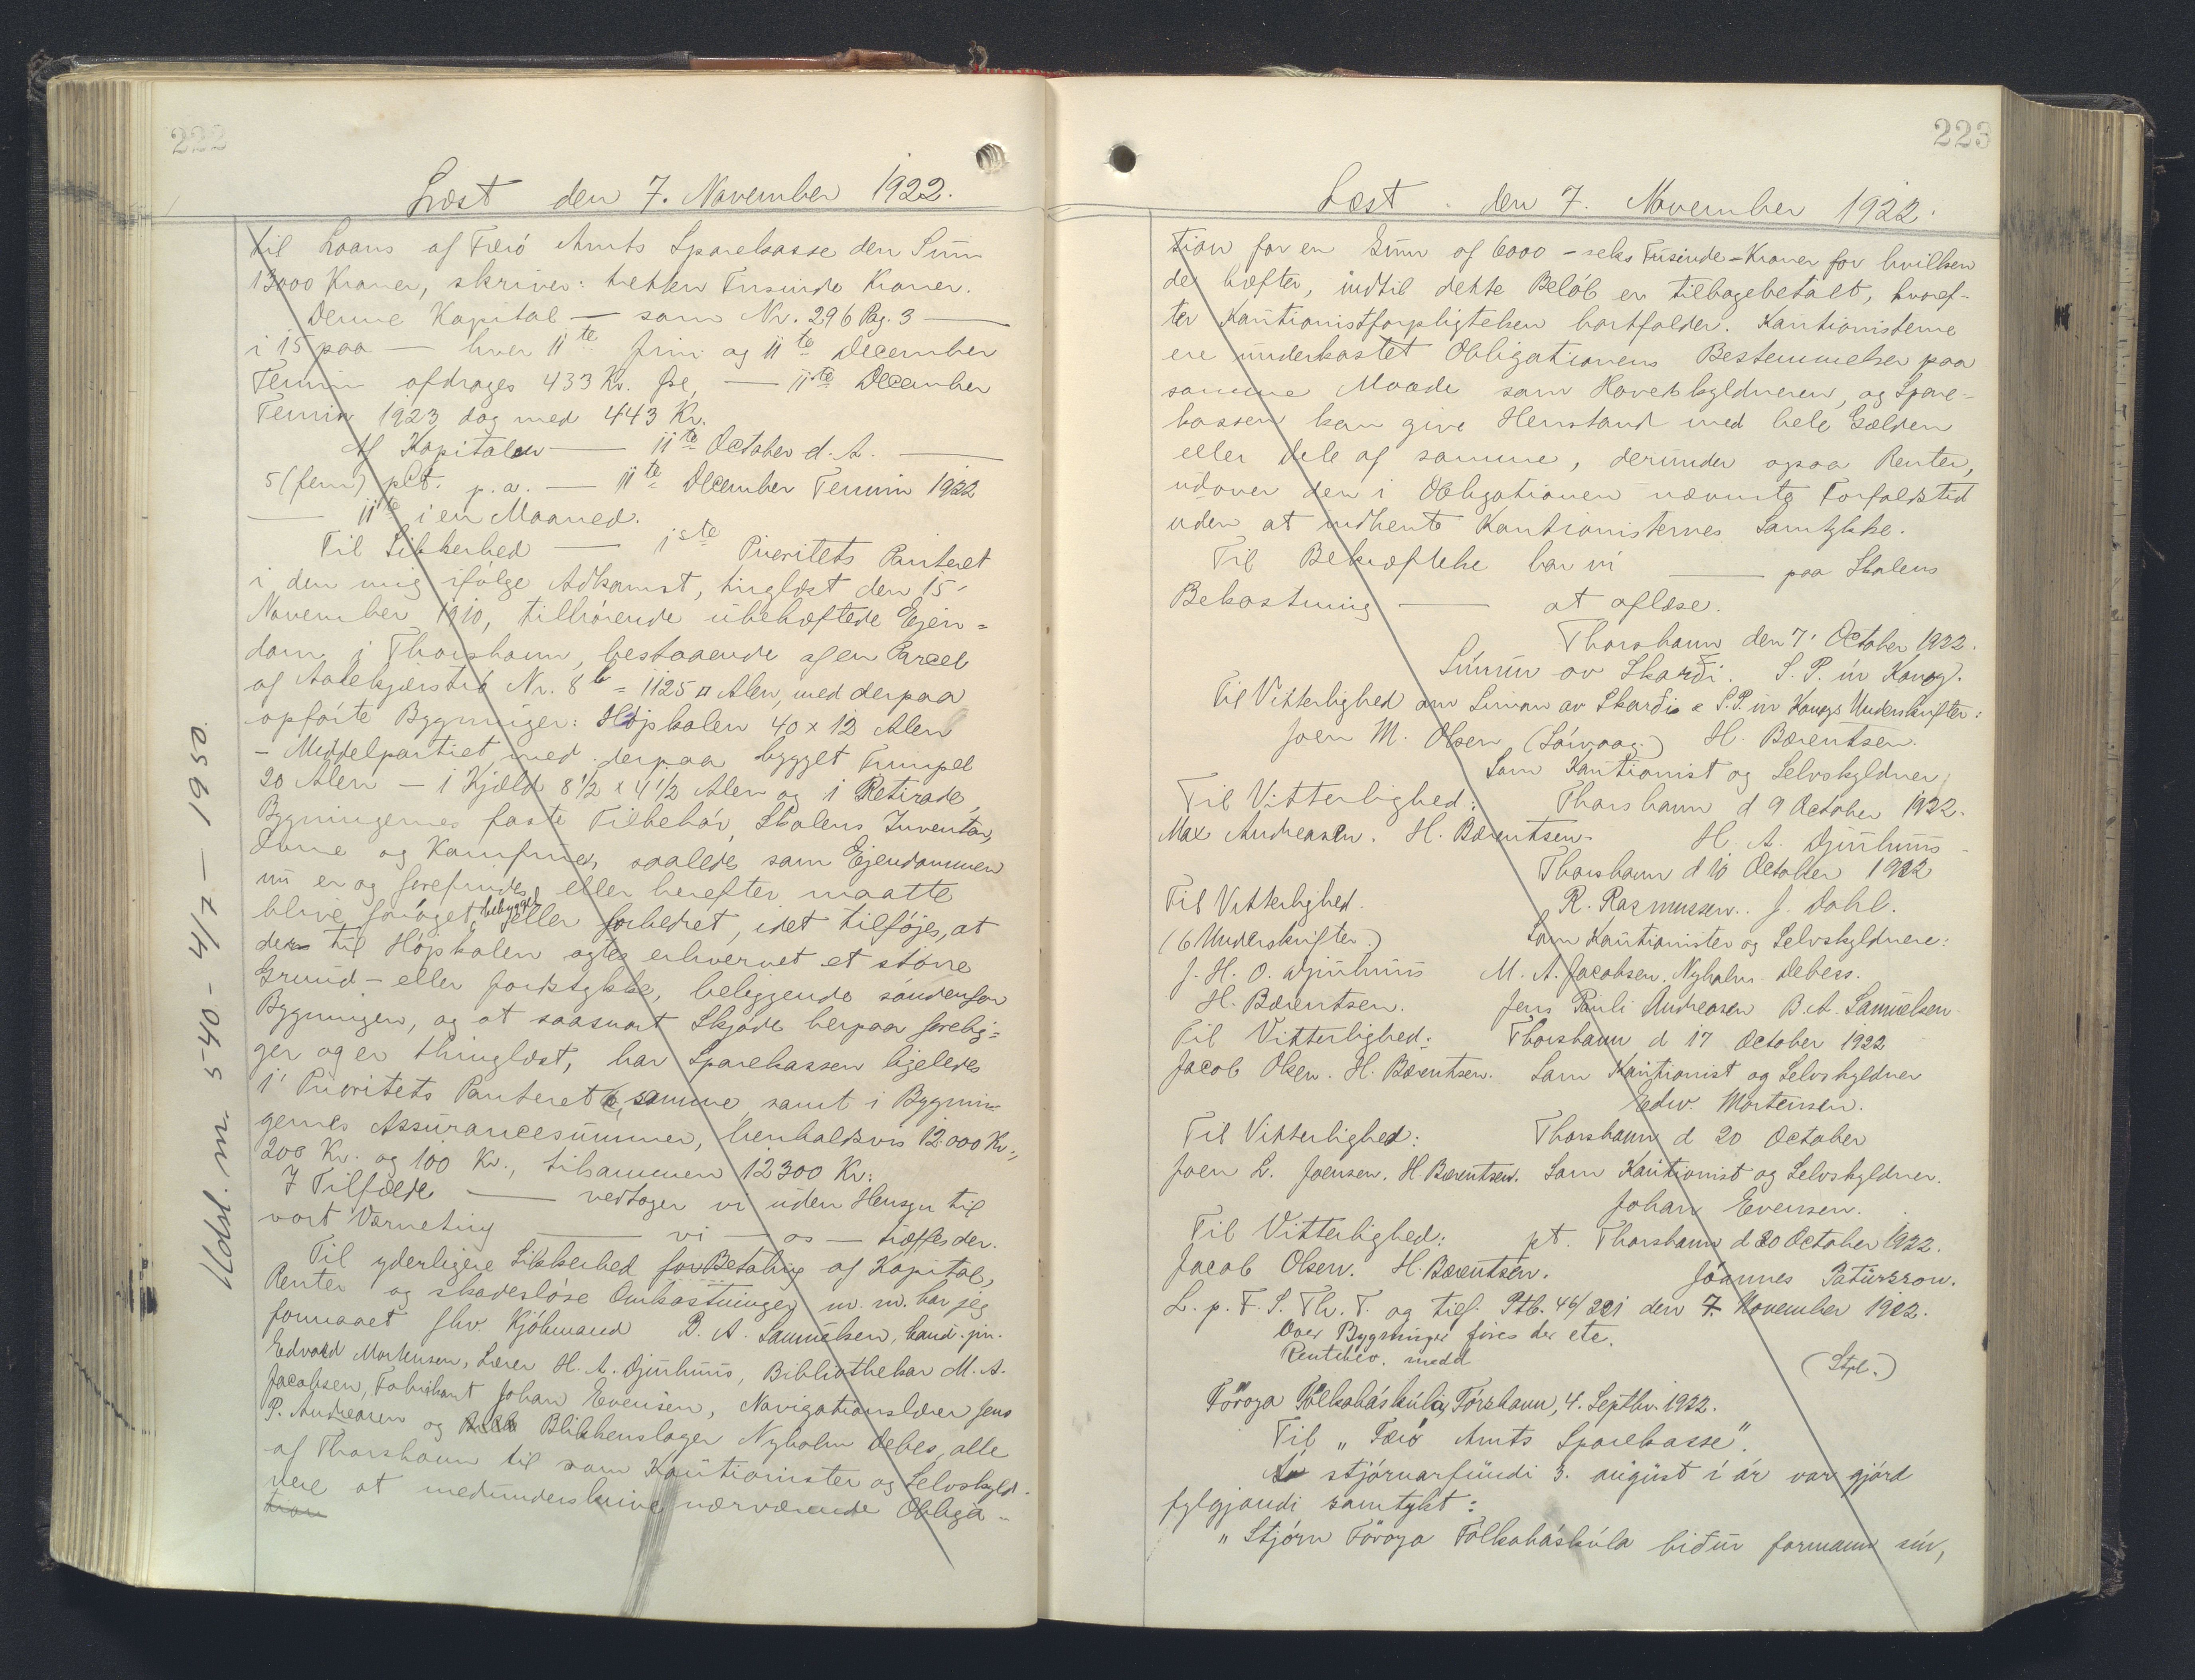 222
Læst den 7. November 1922.
til Laans af Færö Amts Sparekasse den Sum
13000 Kroner, skriver: tretten Tusinde Kroner.
Denne Kapital — som Nr. 296 Pag. 3 —
i 15 paa — hver 11te Juni og 11te December
Termin afdrages 433 Kr. — 11te December
Termin 1923 dog med 443 Kr.
Af Kapitalen — 11te October d. A. —
5 (fem) pCt. p.a. — 11te December Termin 1922
— 11te i en Maaned.
Til Sikkerhed — 1ste Prioritets Panteret
i den mig ifölge Adkomst, tinglæst den 15'
November 1910, tilhörende übehæftede Ejen=
dom i Thorshavn, bestaaende af en Parcel
af Nr. 8b = 1125 □ Alen, med derpaa
opförte Bygninger: Højskolen 40 x 12 Alen
- Middelpartiet med derpaa bygget Trempel
20 Alen - 1 Kjæld 8 1/2 x 4 1/2 Alen og 1 Retirade,
Bygningernes faste Tilbehör, Skolens Inventar,
Ovne og Komfurer, saaledes som Ejendommen
nü er og forefindes, eller herefter maatte
blive foröget, bebygget eller forbedret, idet tilföjes, at
der til Höjskolen agtes erhvervet et större
Grund- eller Jordstykke, beliggende söndenfor
Bygningen, og at saasnart Skjöde herpaa forelig=
ger og er thinglæst, har Sparekassen ligeledes
1' Prioritets Panteret i samme samt i Bygnin=
gernes Assürancesümmer, henholdsvis 12.000 Kr.,
200 Kr. og 100 Kr., tilsammen 12300 Kr.
I Tilfælde — vedtager vi uden Hensyn til
vort Værneting — vi — os — træffes der.
Til yderligere Sikkerhed for Betaling af Kapital,
Renter og skadeslöse Omkostninger m. m. har jeg
formaaet fhv. Kjöbmand B. A. Samuelsen, Cand. jur.
Edvard Mortensen, Lærer H. A. Djurhuus, Bibliothekar M. A.
Jacobsen, Fabrikant Johan Evensen, Navigationslærer Jens
P. Andreasen og Blikkenslager Nyholm Debes, alle
af Thorshavn til som Kautionister og Selvskyld-
nere at medunderskrive nærværende Obliga-
tion
Udsl. m. 540 - 4/7 — 1950.
223
Læst den 7. November 1922.
tion for en Sum af 6000 - seks Tusinde - Kroner for hvilken
de hæfter, indtil dette Belöb er tilbagebetalt, hvoref-
ter Kautionistforpligtelsen bortfalder. Kautionisterne
ere underkastet Obligationens Bestemmelser paa
samme Maade som Hovedskyldneren, og Spare-
kassen kan give Henstand med hele Gælden
eller Dele af samme, derunder ogsaa Renter,
udover den i Obligationen nævnte Forfaldstid
uden at indhente Kautionisternes Samtykke.
Til Bekræftelse har vi — paa Skolens
Bekostning — at aflæse.
Thorshavn den 7' October 1922.
Símun av Skarði. S. P. úr Konoy.
Til Vitterlighed om Simun av Skarði's & S. P. úr Konoys Underskrifter:
Joen M. Olsen (Sörvaag) H. Bærentsen.
Som Kautionist og Selvskyldner,
Til Vitterlighed: Thorshavn d 9 October 1922.
Max Andreasen. H. Bærentsen. H. A. Djurhuus
Thorshavn d 10 October 1922
Til Vitterlighed. R. Rasmussen. J. Dahl.
(6 Underskrifter.) Som Kautionister og Selvskyldnere:
J. H. O. Djurhuus M. A. Jacobsen. Nyholm Debess.
H. Bærentsen. Jens Pauli Andreasen B. A. Samuelsen
Til Vitterlighed: Thorshavn d 17 October 1922
Jacob Olsen. H. Bærentsen. Som Kautionist og Selvskyldner
Edw. Mortensen.
Til Vitterlighed: Thorshavn d 20 October
Joen L. Joensen. H Bærentsen. Som Kautionist og Selvskyldner.
Johan Evensen.
Til Vitterlighed: pt. Thorshavn d 20 October 1922.
Jacob Olsen. H. Bærentsen. Jóannes Patursson.
L. p. F. S. Th. T. og tilf. Ptb. 46/221 den 7. November 1922.
Over Bygninger föres der etc.
Rentebev. medd (Stpl.)
Föroya Fólkaháskúli, Tórshavn, 4. Septbr. 1922.
Til „Færö Amts Sparekasse".
Á stjórnarfundi 3. august í ár var gjörd
fylgjandi samtykt:
„Stjórn Föroya Fólkaháskúla biður formann sín,